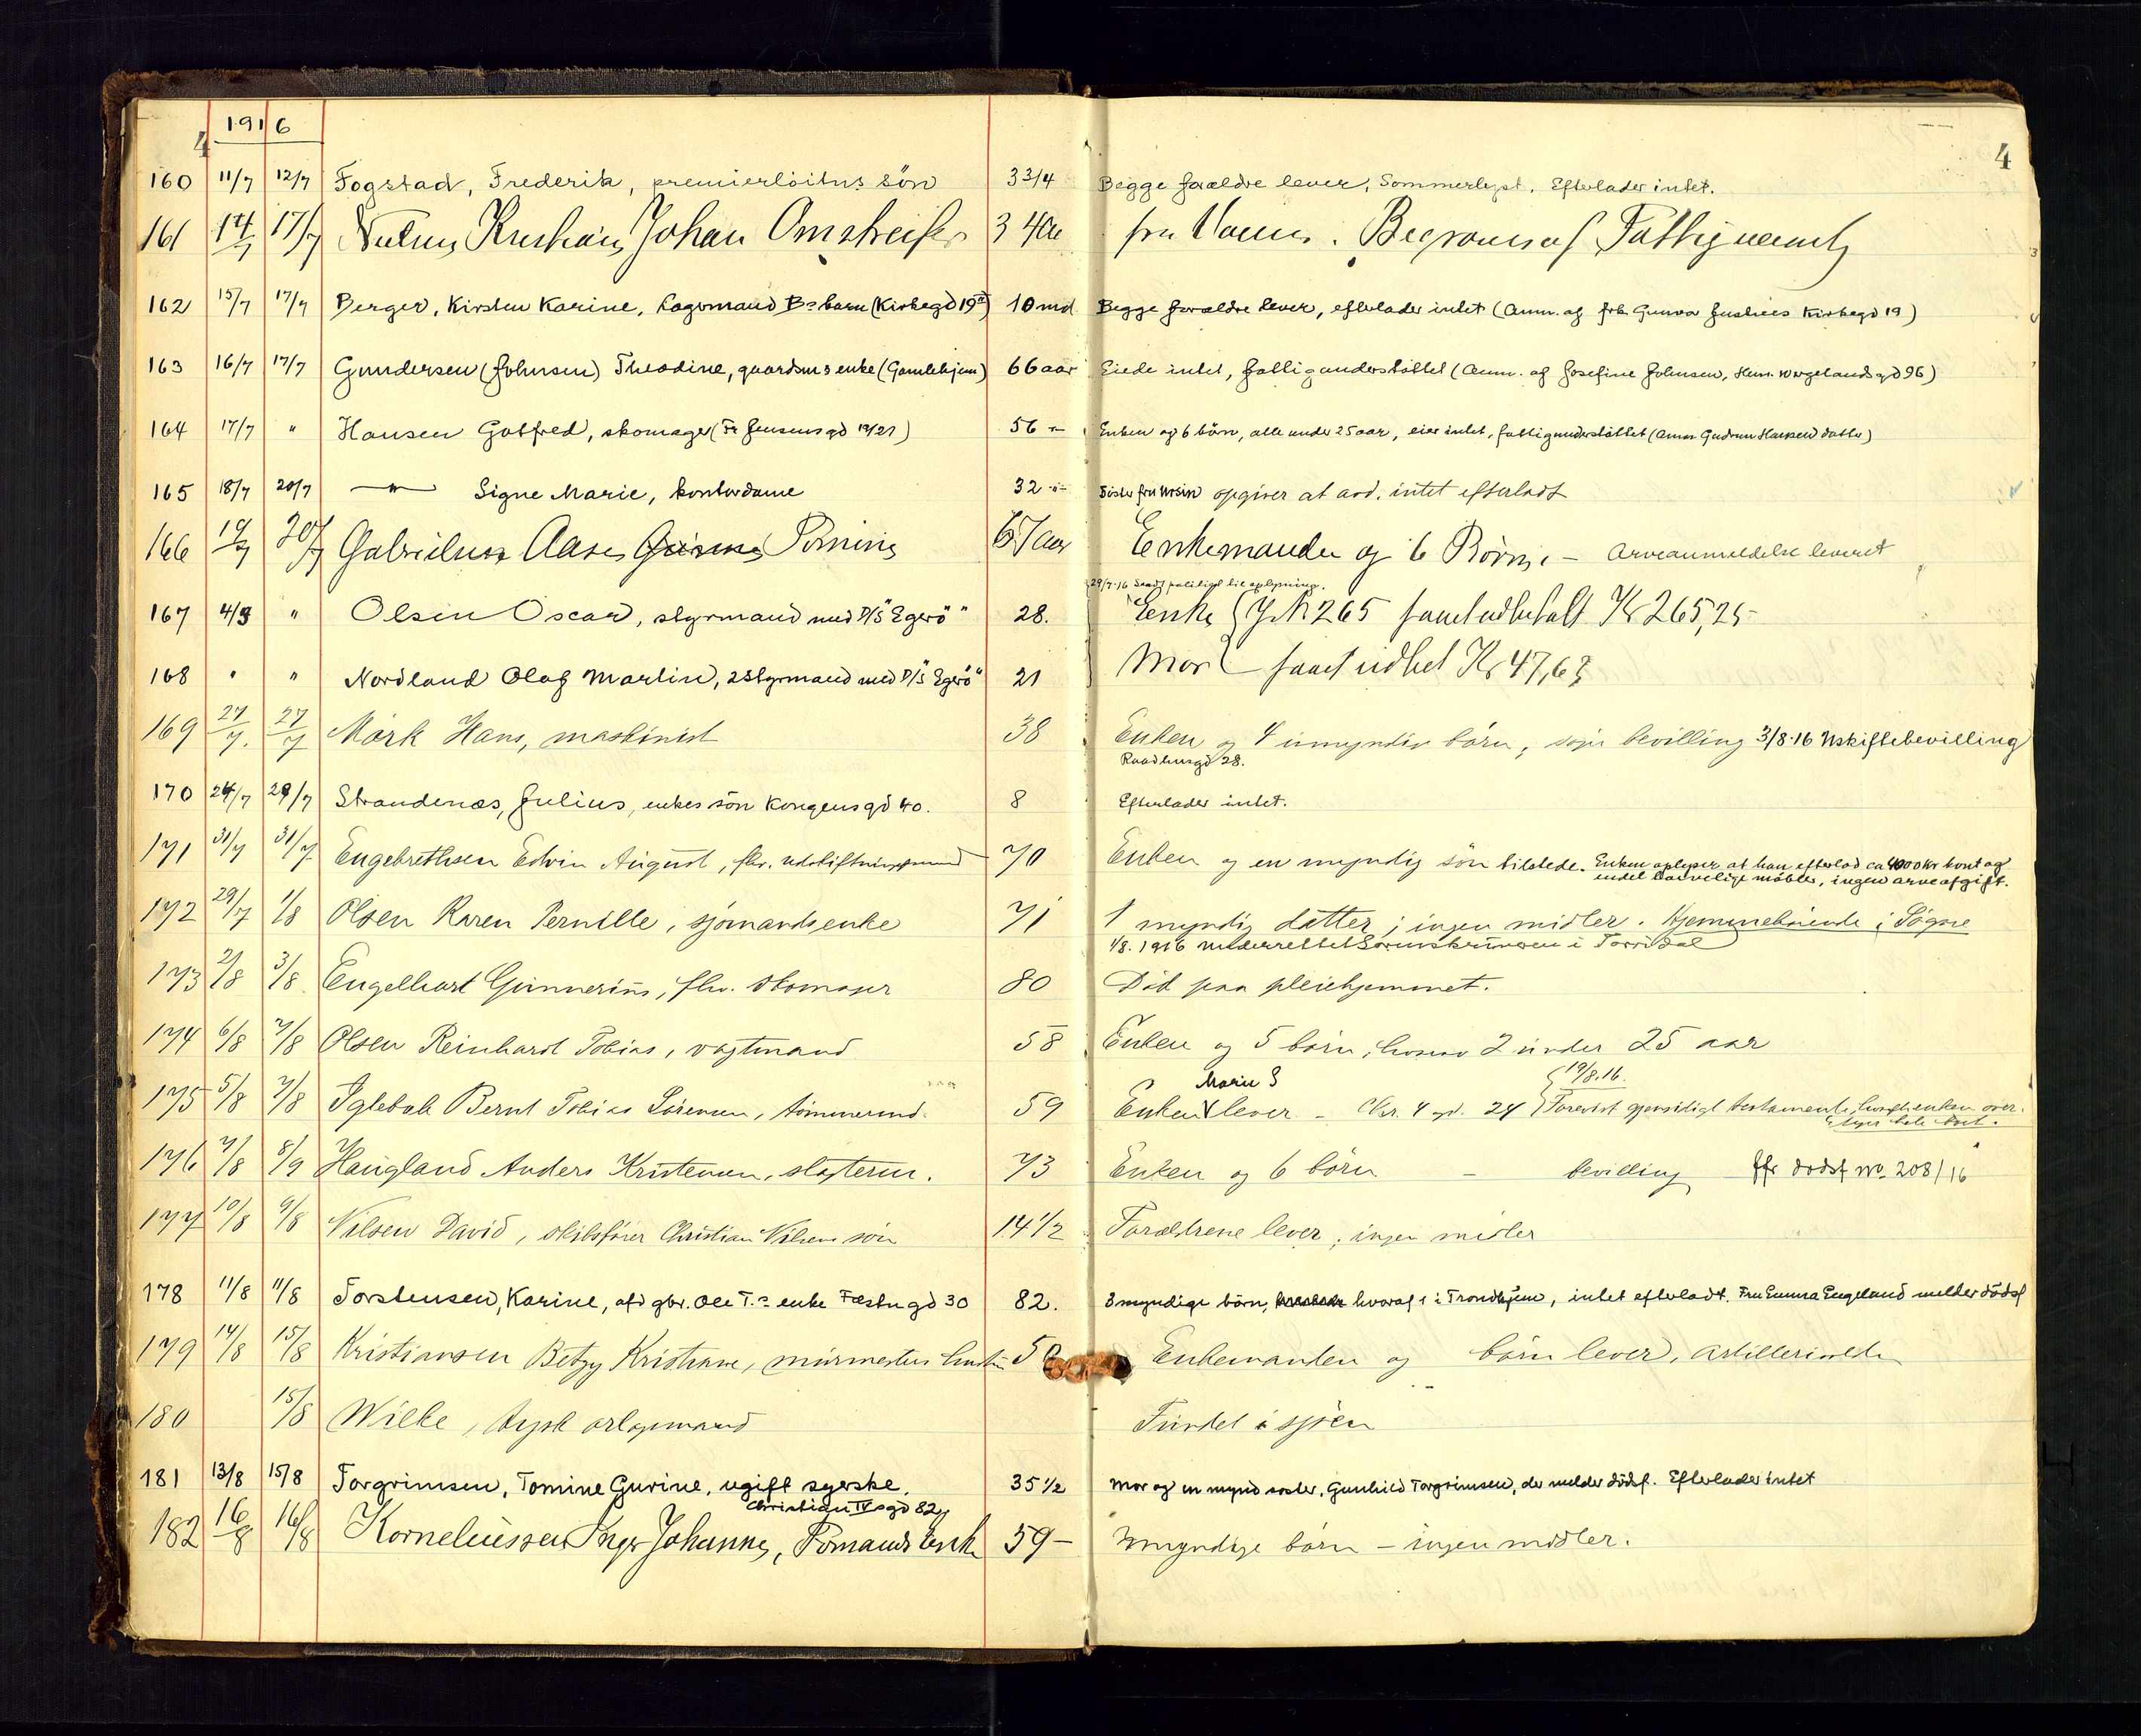 4 1916 4
160 11/7 12/7 Fogstad, Frederik, premierlöitns sön 3 3/4 Begge forældre lever, Sommerlyst. Efterlader intet.
161 14/7 17/7 Johan Omstreifer 3 fra Fattigvæsenet
162 15/7 17/7 Berger, Kirsten Karine, Lagermand Bs barn (Kirkegd 19) 10 md Begge forældre lever, efterlader intet (Anm. af frk Gunvor Kirkegd 19)
163 16/7 17/7 Gundersen (Johnsen) Theodine, gaardms enke (Gamlehjem) 66 aar Eiede intet, fattigunderstöttet (Anm. af Josefine Johnsen, Hen. Wergelandsgd 96)
164 17/7 " Hansen Gotfred, skomager (Fr Jensensgd 19/21) 56 - Enken og 6 börn, alle under 25 aar, eier intet, fattigunderstöttet (Anm Gudrun Hansen datter)
165 18/7 20/7 — " — Signe Marie, kontordame 32 -"- Söster fru opgiver at avd. intet efterladt
166 19/7 20/7 Gabrielsen Aase Tomine 67 aar Enkemanden og 6 Börn, – Arveanmeldelse leveret
29/7-16 Sendt politiet til oplysning.
167 4/3 " Olsen Oscar, styrmand med D/S "Egerö" 28. Enke 265 samt udbetalt Kr 265,25
168 " " Nordland Olaf Martin, 2 styrmand med D/S "Egerö" 21 Mor samt udbet Kr 47,63
169 27/7. 27/7 Mörk Hans, maskinist 38 Enken og 4 umyndige börn, bevilling 3/8-16 Uskiftebevilling
Raadhusgd 28.
170 24/7 29/7 Strandenæs, Julius, enkes sön Kongensgd 40. 8 Efterlader intet.
171 31/7 31/7 Engebrethsen Edvin August, fhv. udskiftningsformand 70 Enken og en myndig sön tilstede. Enken oplyser, at han efterlod ca 4000 kr kont og
endel tarvelige möbler, ingen arveafgift.
172 29/7 1/8 Olsen Karen Pernille, sjömandsenke 71 1 myndig datter; ingen midler. Hjemmehörende i Sögne
1/8. 1916 underrettet Sorenskriveren i Torridal
173 2/8 3/8 Engelhart Gunnerius, fhv. skomager 80 Död paa pleiehjemmet.
174 6/8 7/8 Olsen Reinhardt Tobias, vagtmand 58 Enken og 5 börn, hvorav 2 under 25 aar
Marie S 19/8.16.
175 5/8 7/8 Iglebæk Bernt Tobias Sörensen, tömmermd. 59 Enken lever – Chr. 4 gd. 24 Forevist gjensidigt testamente, hvorefter enken over-
tager hele boet.
176 7/8 8/9 Haugland Anders Kristensen, slagterm. 73 Enken og 6 börn – bevilling jfr dödsf no. 208/16
177 10/8 9/8 Nilsen David, skibsförer Christian Nilsens sön 14 1/2 Forældrene lever, ingen midler
178 11/8 11/8 Torstensen, Karine, afd gbr. Ole T.s enke Fæstngd 30 82. 3 myndige börn, hvoraf 1 i Trondhjem, intet efterladt. Fru Emma Engeland melder dödsf
179 14/8 15/8 Kristiansen Betzy Kristiane, murmesters hustru 5 Enkemanden og börn lever, Artillerivolden
180 15/8 Wilke, tysk orlogsmand Fundet i sjöen
181 13/8 15/8 Torgrimsen, Tomine Gurine, ugift syerske. 35 1/2 Mor og en mynd söster, Gunhild Torgrimsen, der melder dödsf. Efterlader intet
Christian IV sgd 82
182 16/8 16/8 Korneliussen Inger Johanne, enke 59 – Umyndige börn – ingen midler.